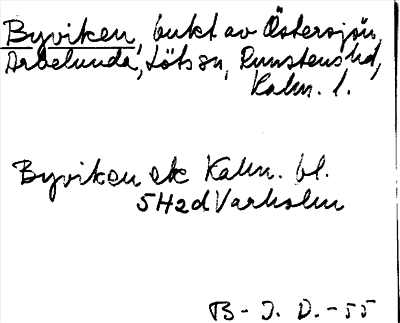 Byviken, bukt av Östersjön,
Arbelunda, Löts sn, Runstens hd,
Kalm. l.
Byviken ek Kalm. bl.
5H2d Varholm
B- J. D. -55